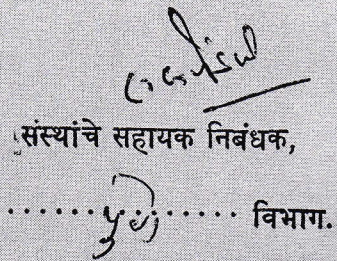 संस्थांचे सहायक निबंधक,
......पुणे...... विभाग.